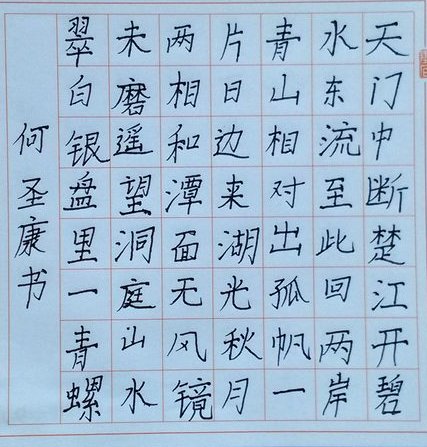 天门中断楚江开碧
水东流至此回两岸
青山相对出孤帆一
片日边来湖光秋月
两相和潭面无风镜
未磨遥望洞庭山水
翠白银盘里一青螺
何圣康书